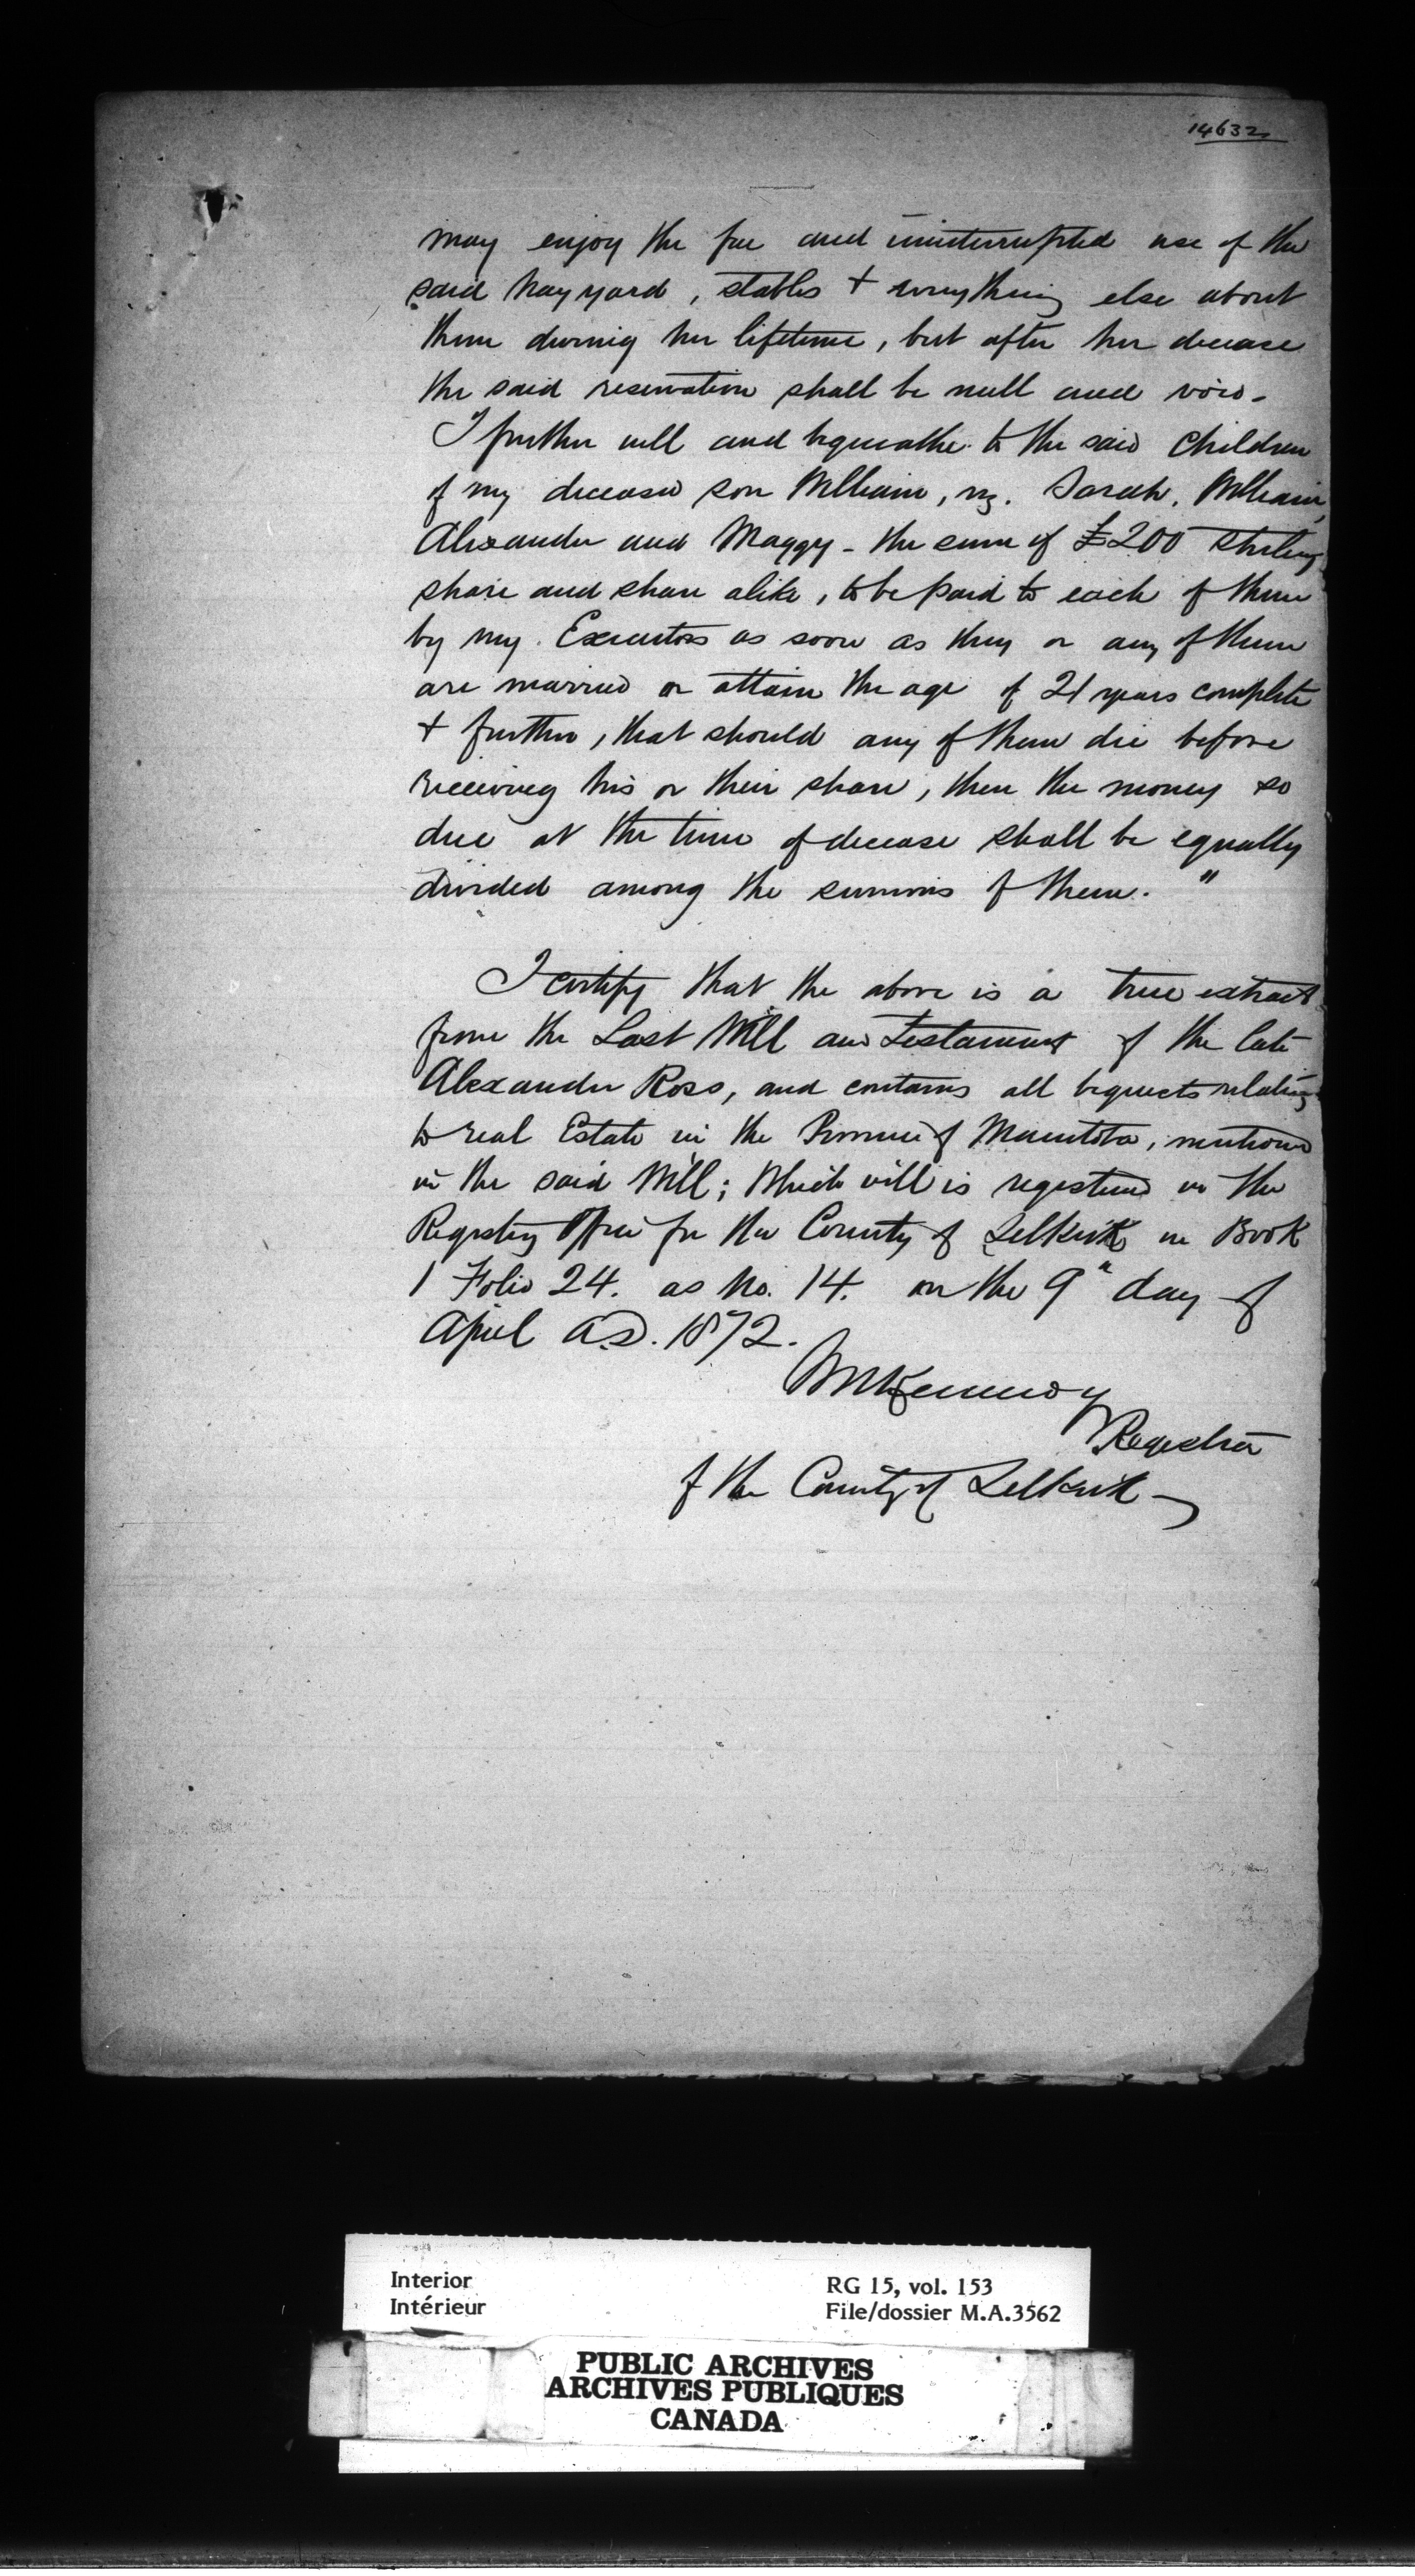 14632
may enjoy the free and uninterrupted use of the
said hay yard, stables + everything else about
them during her lifetime, but after her decease
the said reservation shall be null and void.
I further will and bequeathe to the said children
of my deceased son William, viz. Sarah, William,
Alexander and Maggy - the sum of £200 sterling
share and share alike, to be paid to each of them
by my Executors as soon as they or any of them
are married or attain the age of 21 years complete
+ further, that should any of them die before
receiving his or their share, then the money so
due at the time of decease shall be equally
divided among the survivors of them. "
I certify that the above is a true extract
from the Last Will and Testament of the late
Alexander Ross, and contains all bequests relating
to real Estate in the Province of Manitoba, mentioned
in the said Will; Which will is registered in the
Registry Office for the County of Selkirk in Book
1 Folio 24. as No. 14. on the 9th day of
April A.D. 1872.
WNKennedy
Registrar
of the County of Selkirk
Interior
Intérieur
RG 15, vol. 153
File/dossier M.A.3562
PUBLIC ARCHIVES
ARCHIVES PUBLIQUES
CANADA